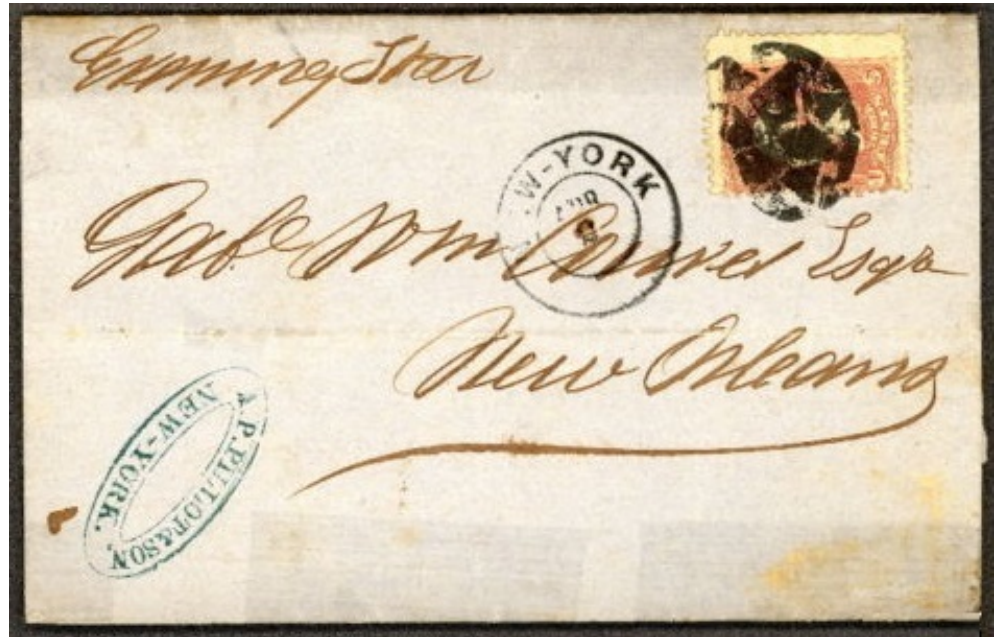 Evening Star
NEW-YORK
APR
8
Gabl Wm Esqr
New Orleans
A. P. PILLOT & SON,
NEW-YORK.